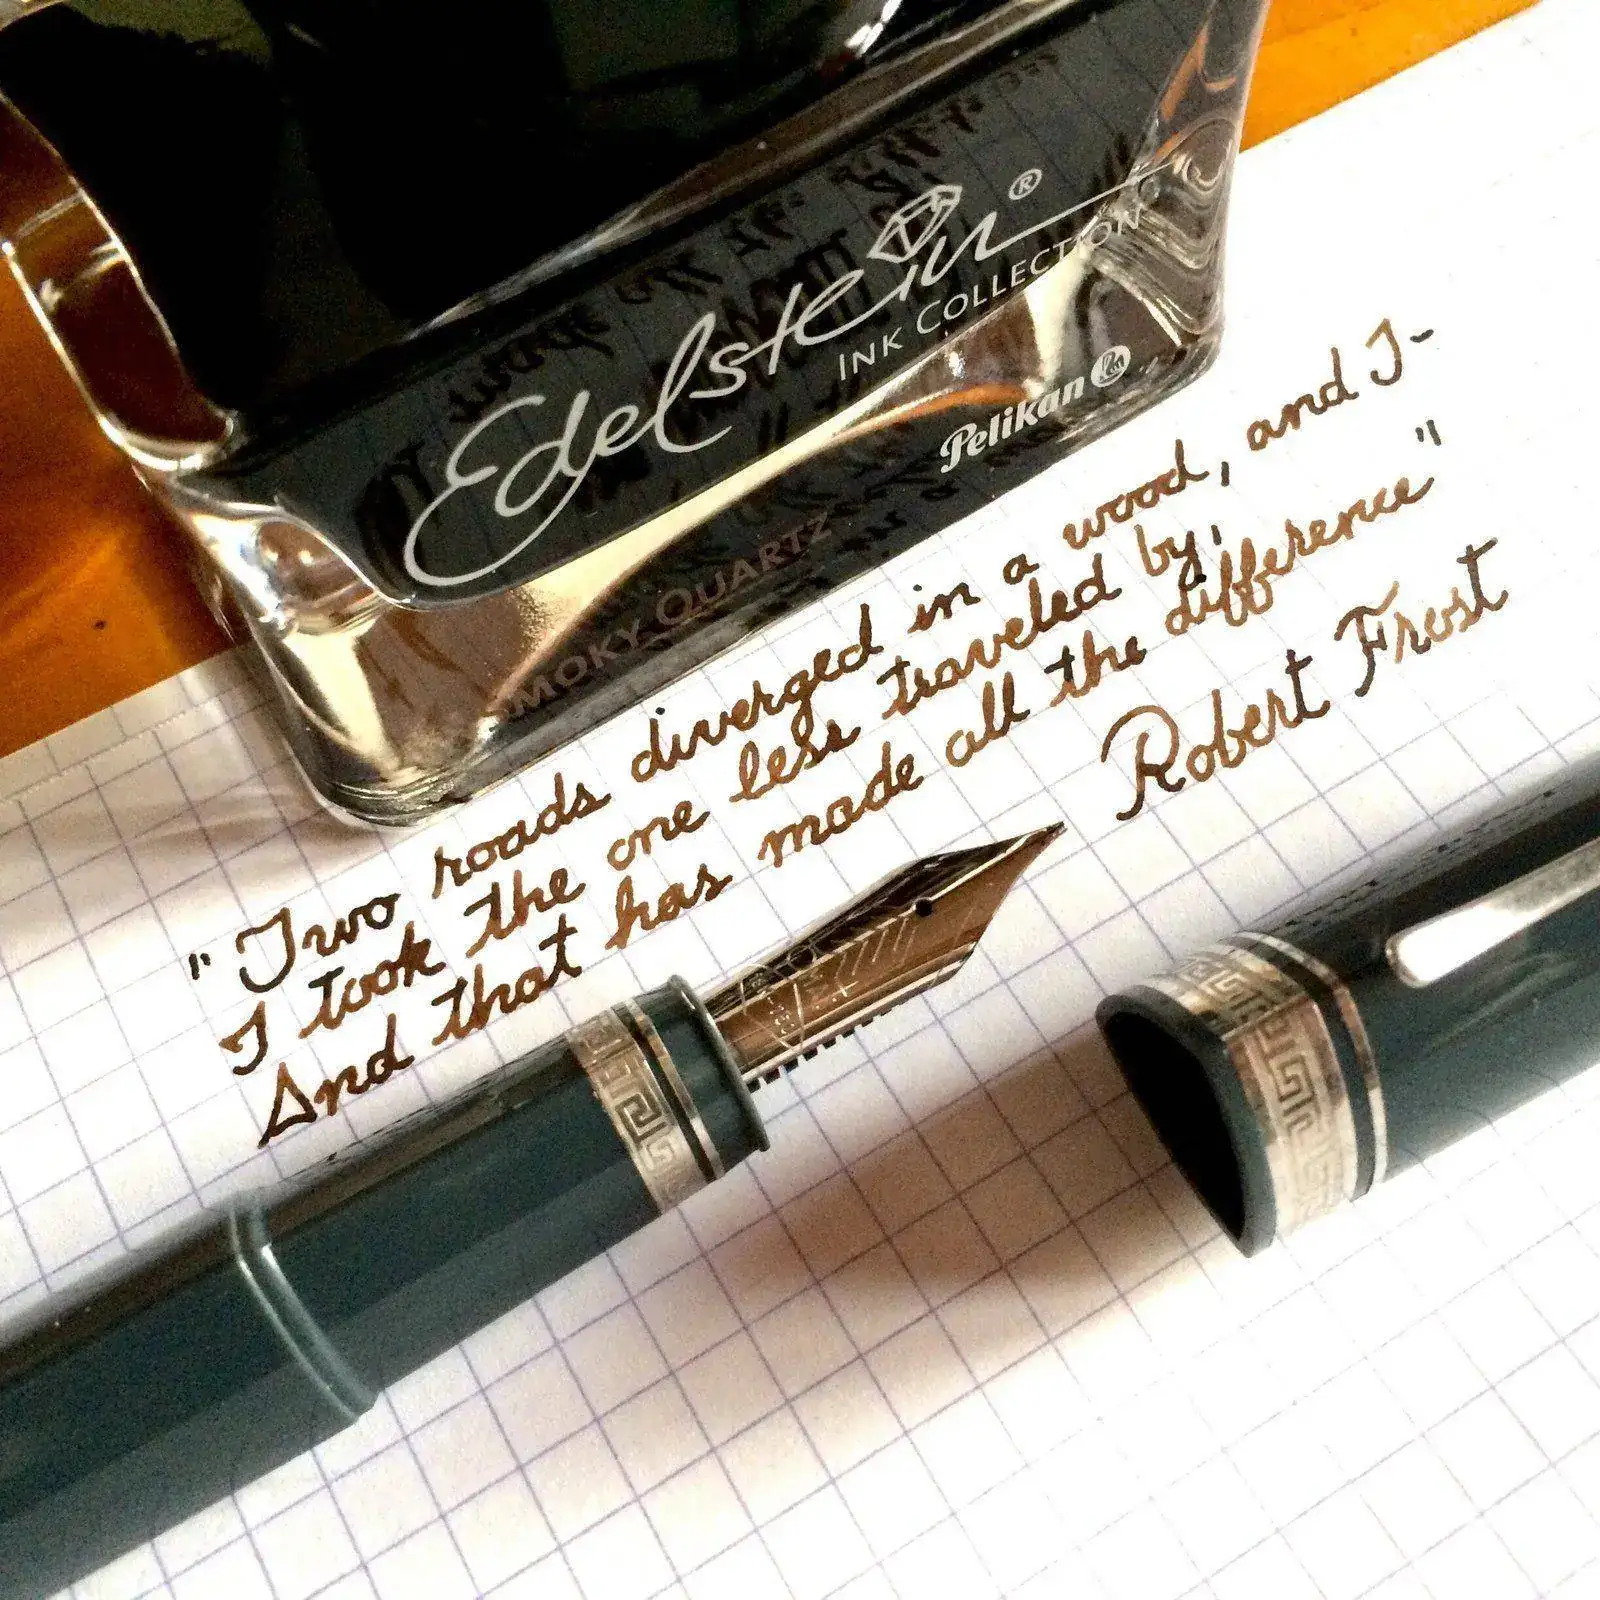 Edelstein®
INK COLLECTION
Pelikan
SMOKY QUARTZ
"Two roads diverged in a wood, and I-
I took the one less traveled by,
And that has made all the difference"
Robert Frost